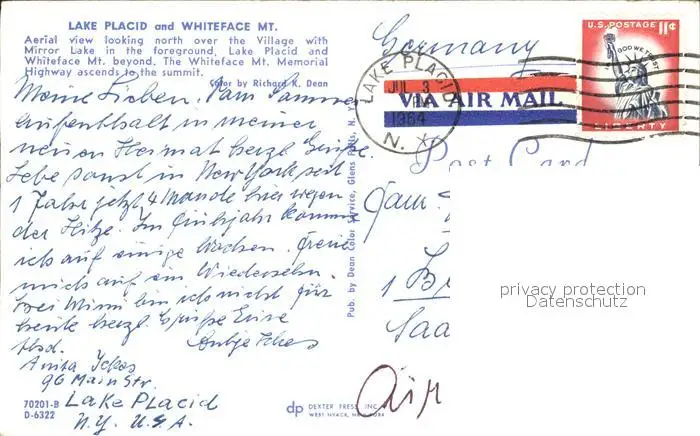 LAKE PLACID and WHITEFACE MT.
Aerial view looking north over the Village with
Mirror Lake in the foreground, Lake Placid and
Whiteface Mt. beyond. The Whiteface Mt. Memorial
Highway ascends to the summit.
Color by Richard K. Dean
Meine Lieben. Vom Sommer
aufenthalt in meiner
neuen Heimat herzl. Grüße.
Lebe sonst in New York seit
1 Jahr jetzt 4 Monate hier wegen
der Hitze. Im Frühjahr komme
ich auf einige Wochen. Freue
mich auf ein Wiedersehn.
bin ich nicht für
heute herzl. Grüße Eure
Anita Ickes
96 Main Str.
Lake Placid
N.Y. U.S.A.
70201-B
D-6322
Pub. by Dean Color Service, Glens Falls, N. Y.
dp DEXTER PRESS, INC.
WEST NYACK, NEW YORK
Germany
LAKE PLACID
JUL 3
PM
1964
N. Y.
VIA AIR MAIL
U.S. POSTAGE 11¢
IN GOD WE TRUST
LIBERTY
Post Card
Fam.
1 B
Saa
Air
privacy protection
Datenschutz